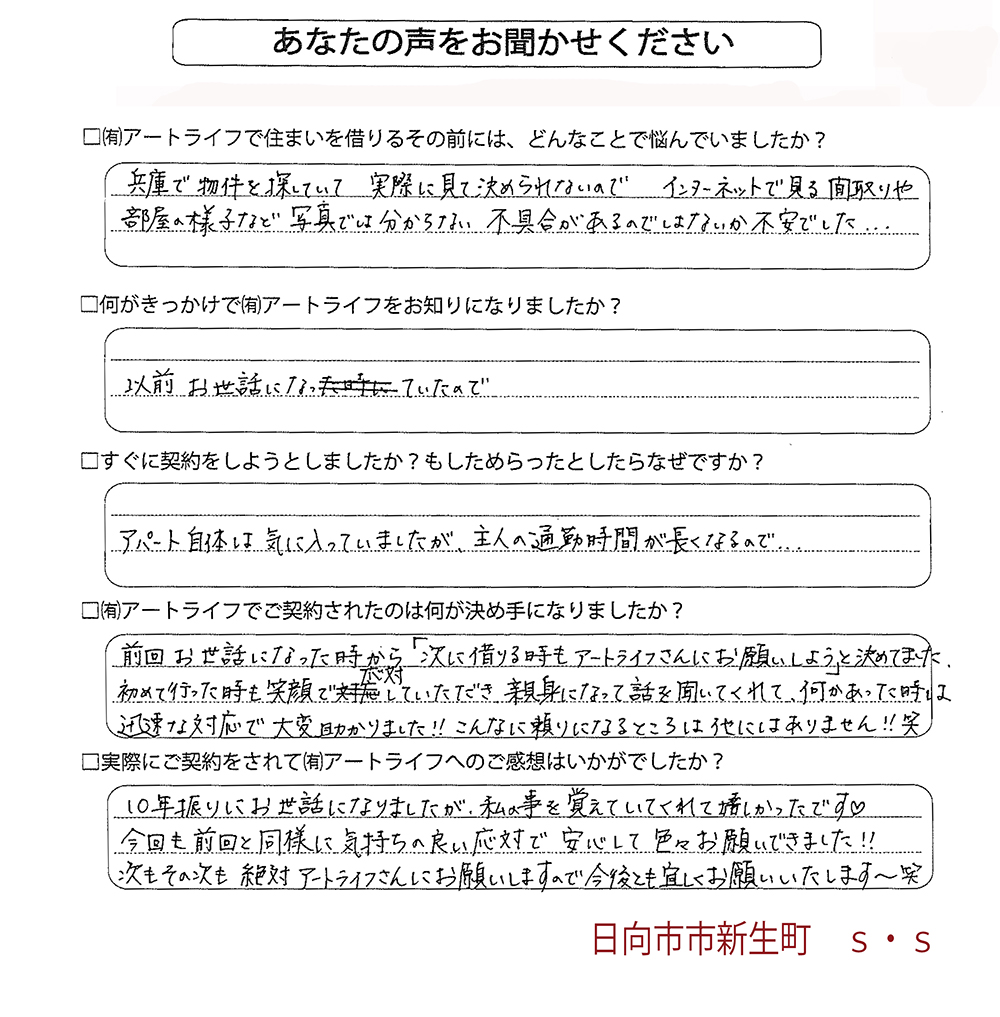 あなたの声をお聞かせください
□㈲アートライフで住まいを借りるその前には、どんなことで悩んでいましたか？
兵庫で物件を探していて 実際に見て決められないので インターネットで見る間取りや
部屋の様子など写真では分からない 不具合があるのではないか不安でした...
□何がきっかけで㈲アートライフをお知りになりましたか？
以前お世話になった時にていたので
□すぐに契約をしようとしましたか？もしためらったとしたらなぜですか？
アパート自体は気に入っていましたが、主人の通勤時間が長くなるので...
□㈲アートライフでご契約されたのは何が決め手になりましたか？
前回お世話になった時から「次に借りる時もアートライフさんにお願いしよう」と決めてました、
応対
初めて行った時も笑顔で対応していただき 親身になって話を聞いてくれて、何かあった時は
迅速な対応で大変助かりました!! こんなに頼りになるところは他にはありません!! 笑
□実際にご契約をされて㈲アートライフへのご感想はいかがでしたか？
10年振りにお世話になりましたが、私の事を覚えていてくれて嬉しかったです♡
今回も前回と同様に気持ちの良い応対で 安心して色々お願いできました!!
次もその次も絶対アートライフさんにお願いしますので今後とも宜しくお願いいたします〜笑
日向市市新生町 s・s